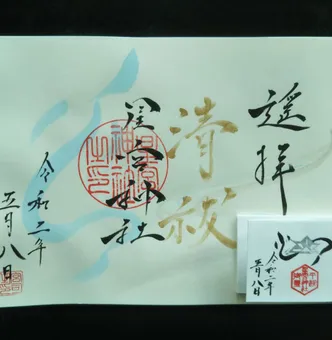 遥拝
清祓
星宮神社
令和二年
五月八日
令和二年
五月八日